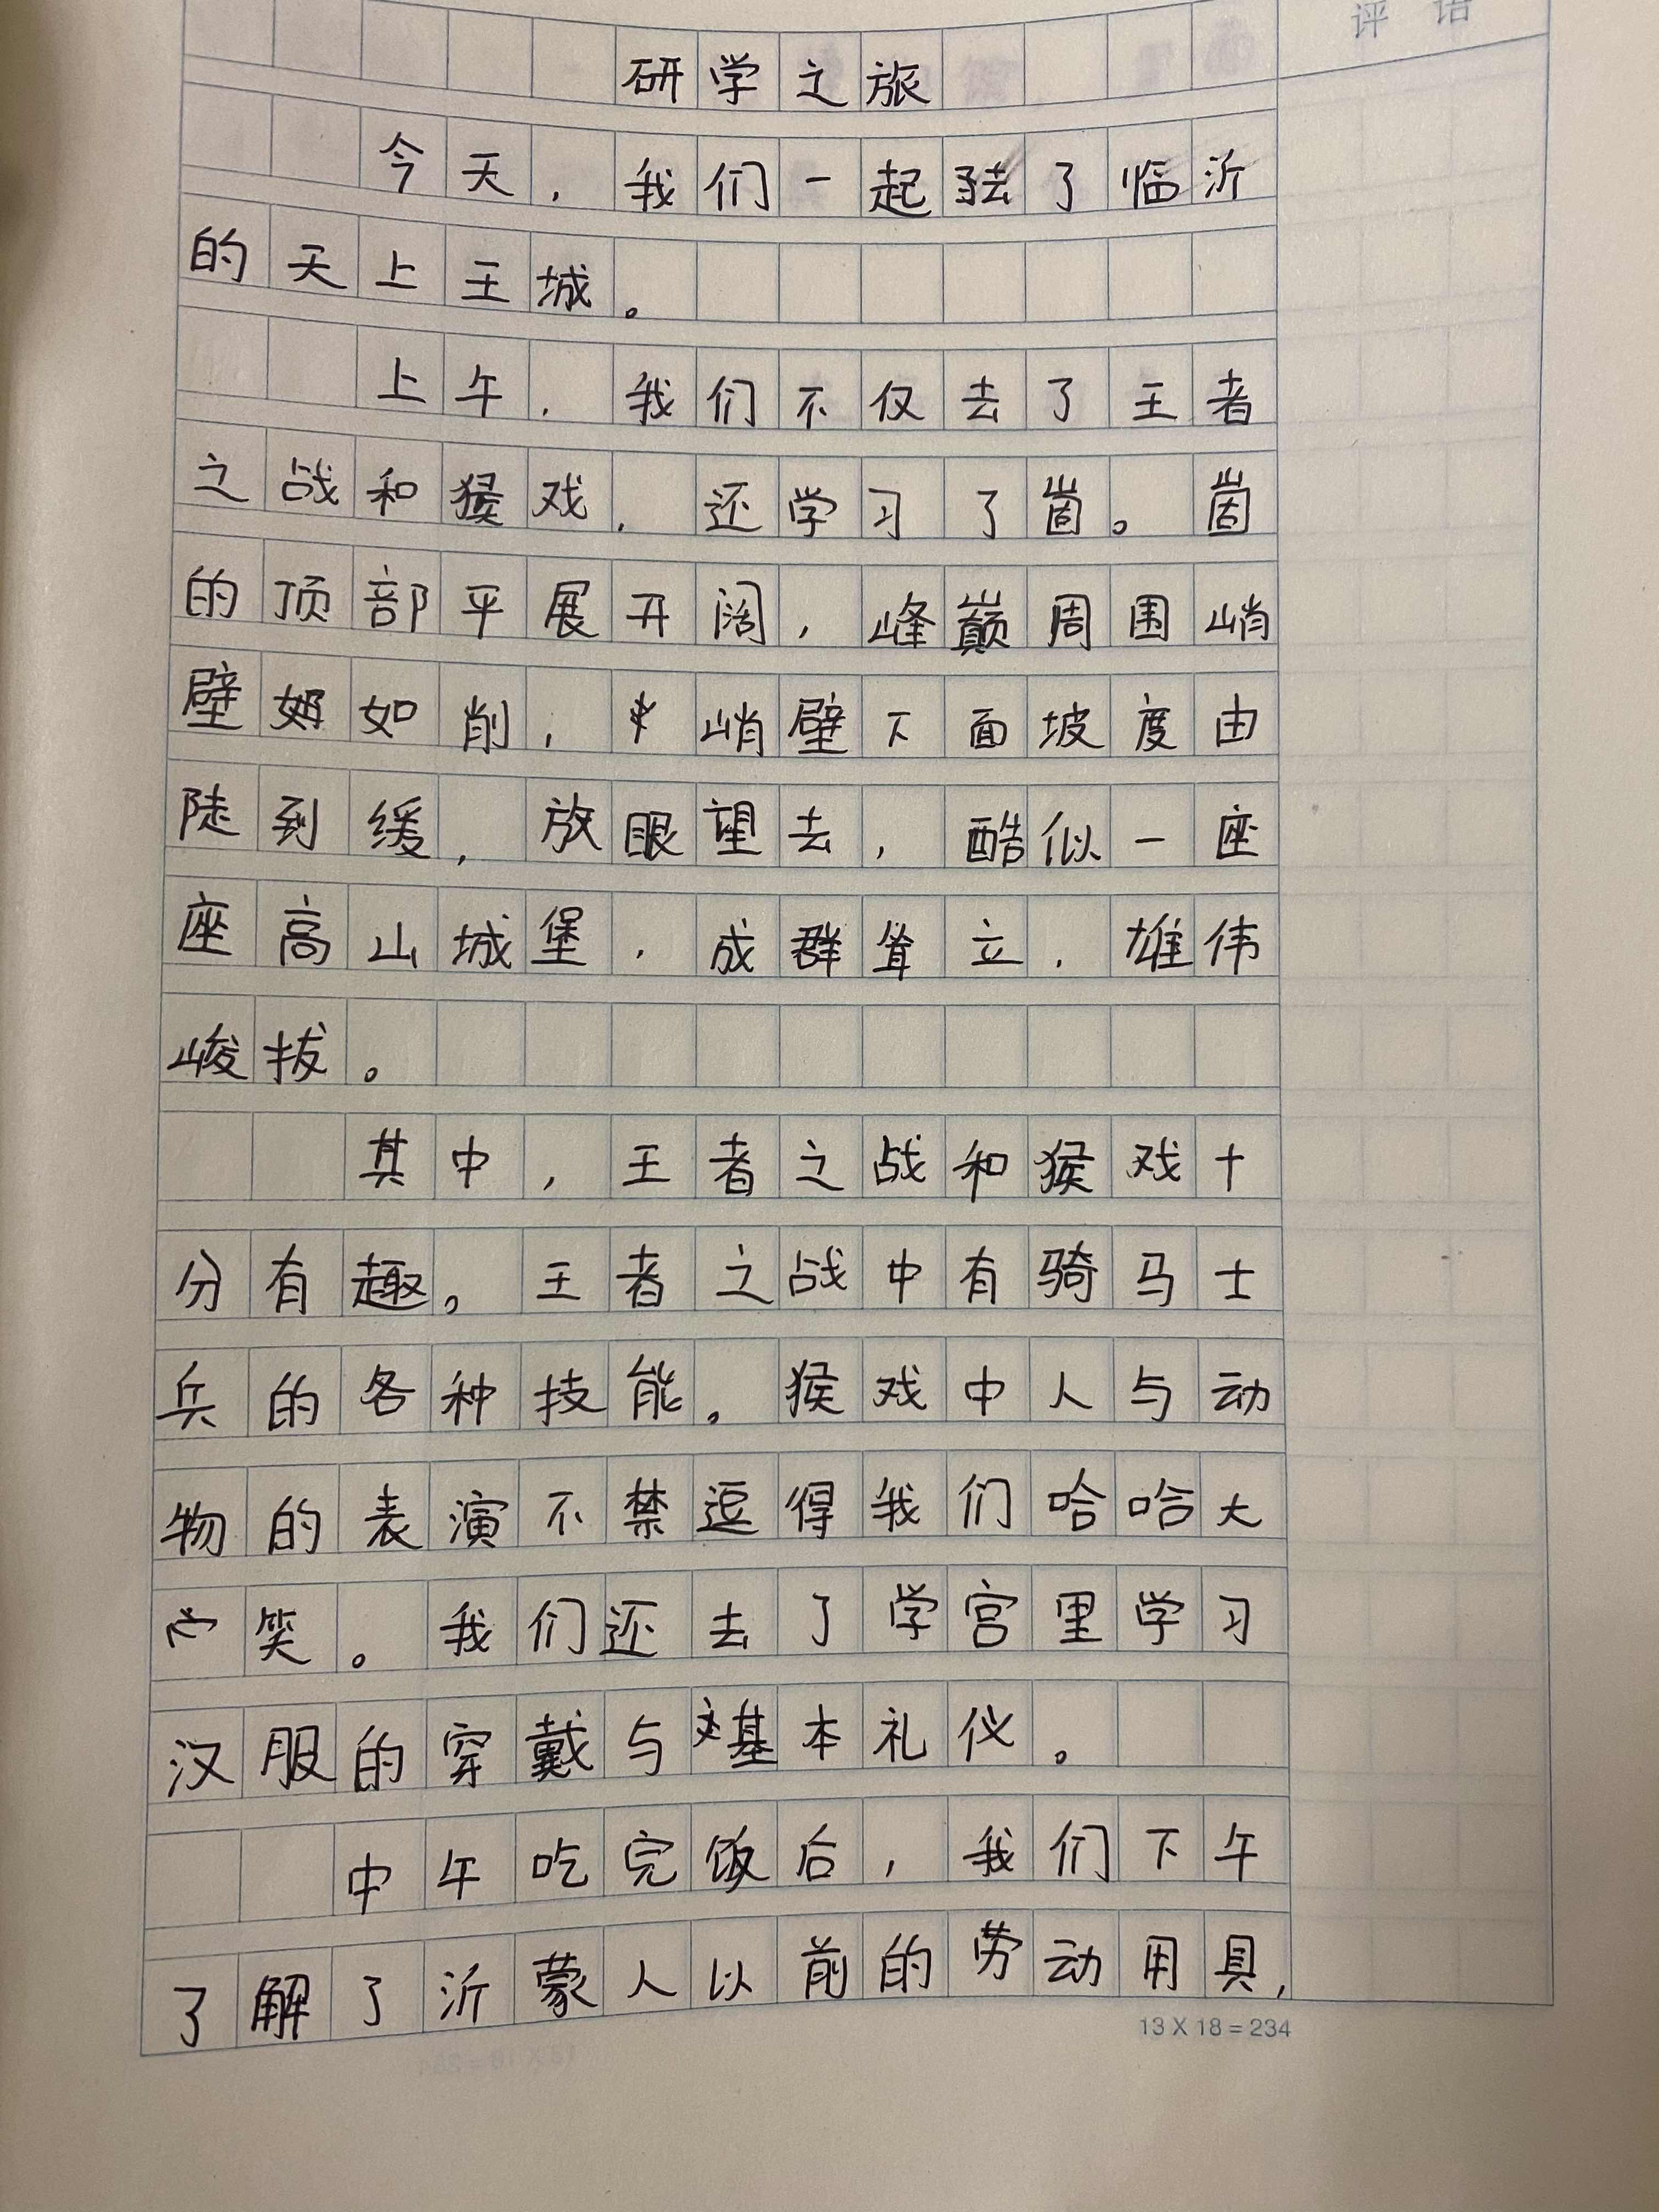 评语
研学之旅
今天，我们一起去了临沂
的天上王城。
上午，我们不仅去了王者
之战和猴戏，还学习了崮。崮
的顶部平展开阔，峰巅周围峭
壁如削，峭壁下面坡度由
陡到缓，放眼望去，酷似一座
座高山城堡，成群耸立，雄伟
峻拔。
其中，王者之战和猴戏十
分有趣。王者之战中有骑马士
兵的各种技能。猴戏中人与动
物的表演不禁逗得我们哈哈大
笑。我们还去了学宫里学习
汉服的穿戴与基本礼仪。
中午吃完饭后，我们下午
了解了沂蒙人以前的劳动用具，
13 X 18 = 234